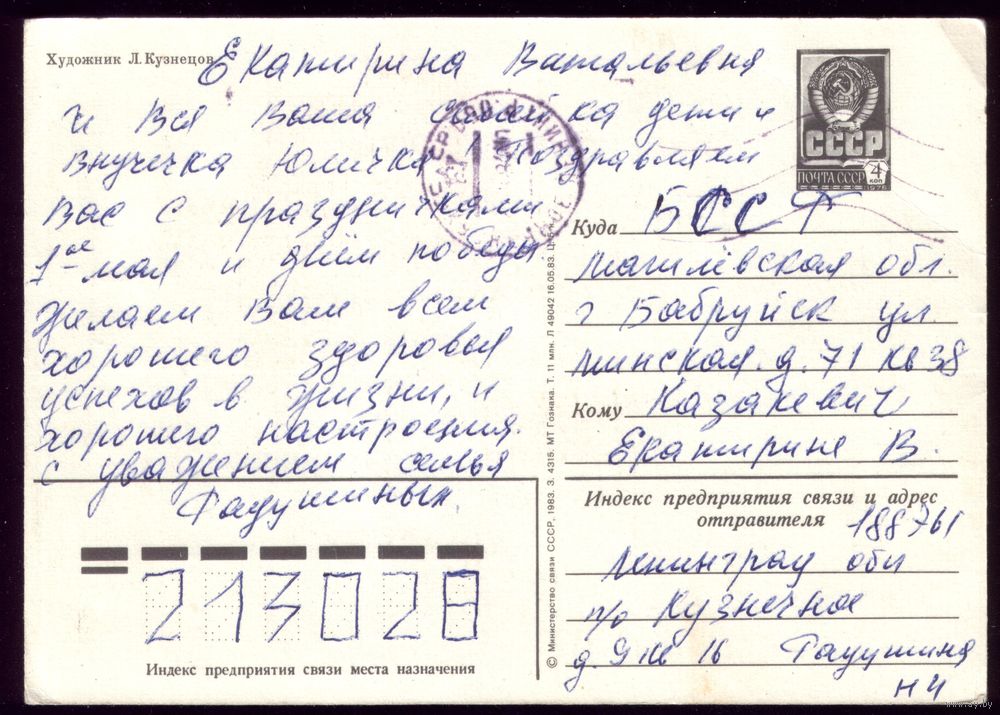 Художник Л. Кузнецов
Екатирина Витальевня
и Вся Ваша семейка дети и
внучичка Юличка Поздравляем
Вас с праздничками
1ое мая и днём победы.
Желаем Вам всем
хорошего здоровья
успехов в жизни, и
хорошего настроения.
с уважением семья
ПОЧТА СССР
СССР
4 коп
1976
Куда БССР
Магилёвская обл.
г Бабруйск ул.
минская. д. 71 кв 38
Кому Казакевич
Екатирине В.
Индекс предприятия связи и адрес
отправителя 188761
Ленинград обл
п/о Кузнечное
д. 9 кв 16
Н И
213028
Индекс предприятия связи места назначения
© Министерство связи СССР, 1983. З. 4315. МТ Гознака. Т. 11 млн. Л 49042 16.05.83. Ц. 5 к.
www.ay.by